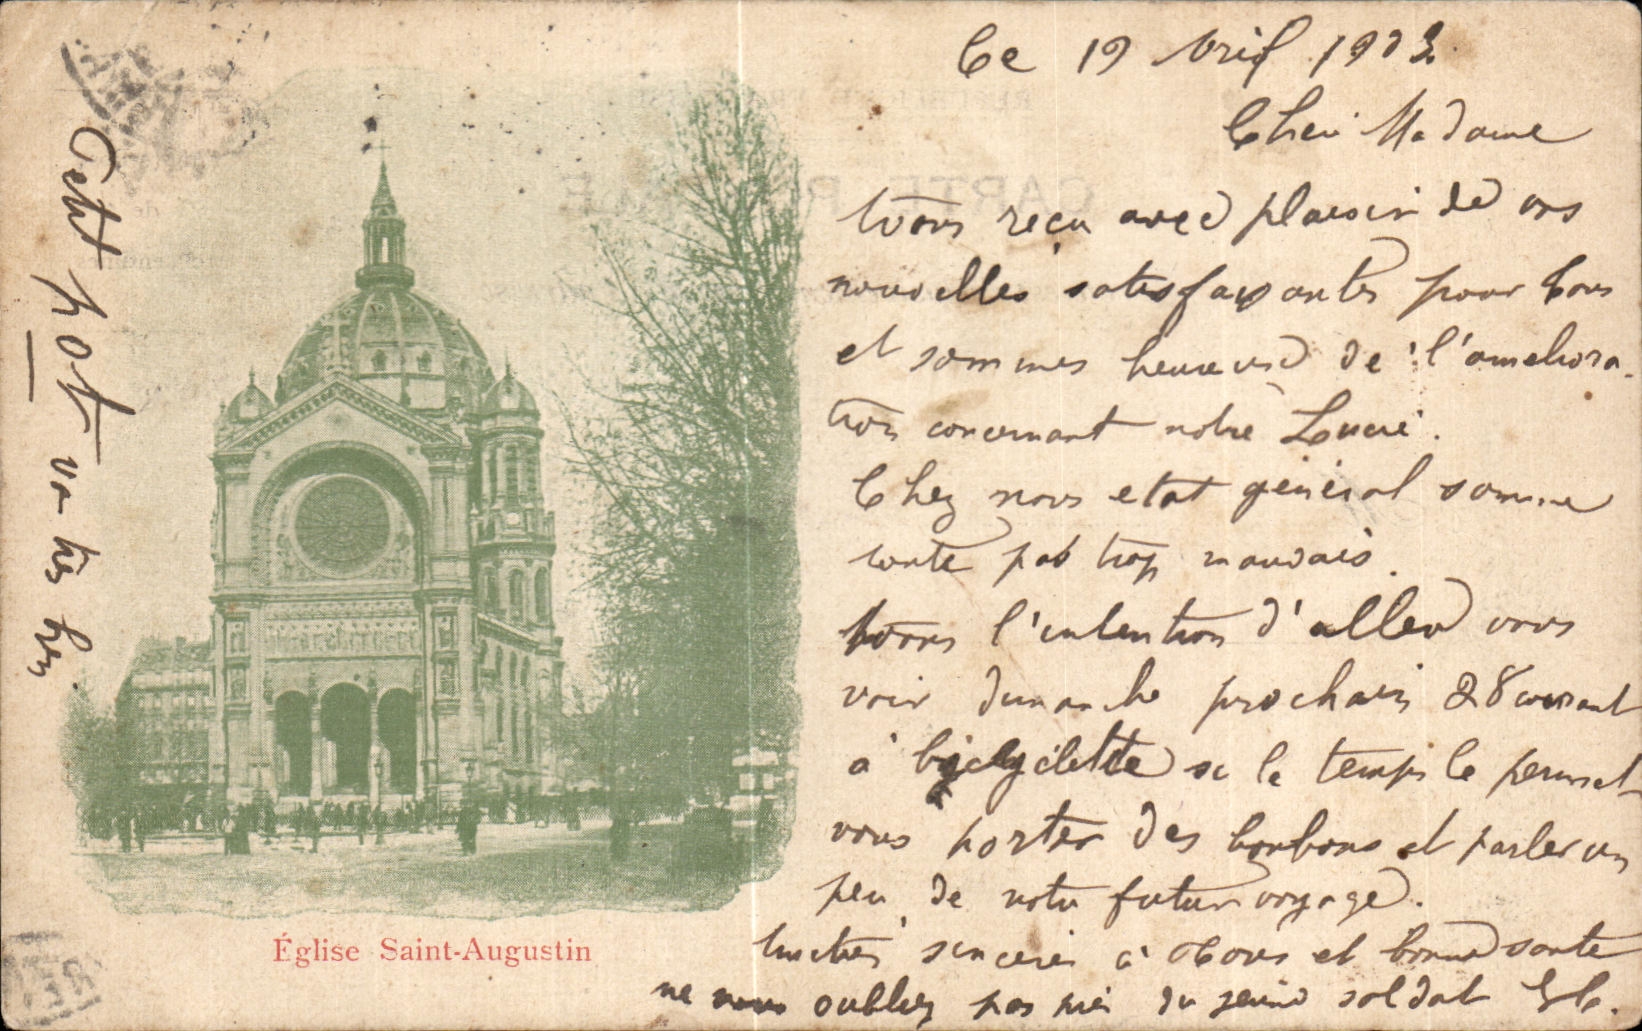 Ce 19 Avril 1902
Chère Madame
Avons reçu avec plaisir de vos
nouvelles satisfaisantes pour tous
et sommes heureuse de l'ameliora-
tion concernant notre Lucie.
Chez nous etat général somme
toute pas trop mauvais.
Avons l'intention d'aller vous
voir dimanche prochain 28 courant
à bicyclette si le temps le permet
vous porter des bonbons et parler un
peu de notre futur voyage.
Amitiés sincères à tous et bonne santé
ne nous oubliez pas du jeune soldat
Petit pot va très bien
CARTE POSTALE
Église Saint-Augustin